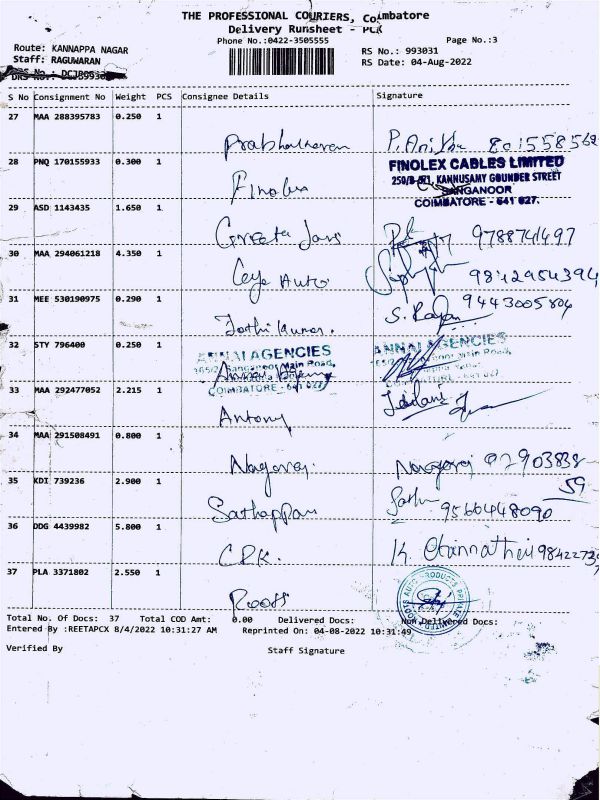 THE PROFESSIONAL COURIERS, Coimbatore
Delivery Runsheet - PCX
Phone No.:0422-3505555
Page No.:3
Route: KANNAPPA NAGAR
RS No.: 993031
Staff: RAGUWARAN
RS Date: 04-Aug-2022
S No Consignment No Weight PCS Consignee Details Signature
27 MAA 288395783 0.250 1
Prabhakaran
28 PNQ 170155933 0.300 1
FINOLEX CABLES LIMITED
KANNUSAMY GOUNDER STREET
SANGANOOR
COIMBATORE - 641 027.
Finolex
29 ASD 1143435 1.650 1
Greeta Jons 9788741497
30 MAA 294061218 4.350 1
Auto 9842954394
31 MEE 530190975 0.290 1
9443005804
Jothikumar. S. Rajan
32 STY 796400 0.250 1
ANNAI AGENCIES ANNAI AGENCIES
Sanganoor Main Road,
COIMBATORE - 641 027
33 MAA 292477052 2.215 1
Antony
34 MAA 291508491 0.800 1
Nagaraj. Nagaraj
35 KDI 739236 2.900 1
59
Sathappan 9566448090
36 DDG 4439982 5.800 1
K.
37 PLA 3371802 2.550 1
Roots
Total No. Of Docs: 37 Total COD Amt: 0.00 Delivered Docs: Non Delivered Docs:
Entered By :REETAPCX 8/4/2022 10:31:27 AM Reprinted On: 04-08-2022 10:31:49
Verified By Staff Signature